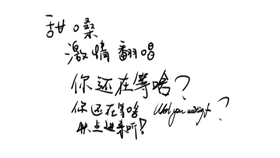 甜嗓
激情翻唱
你还在等啥?
你还在等啥 ?
快点进来听!